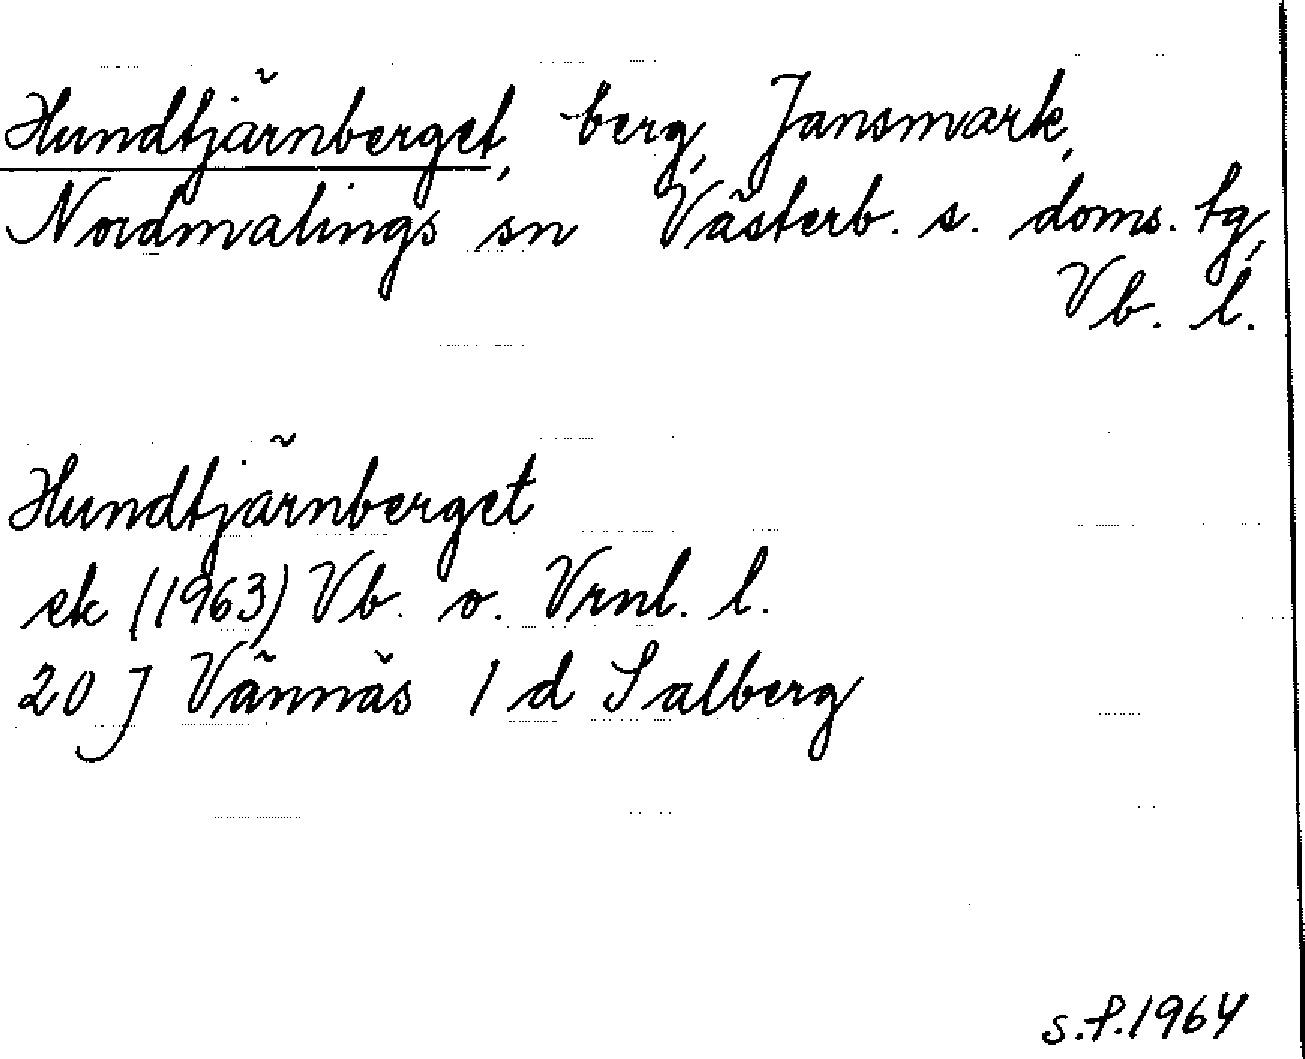 Hundtjärnberget, berg, Jansmark,
Nordmalings sn Västerb. s. doms. tg,
Vb. l.
Hundtjärnberget
ek (1963) Vb. o. Vrnl. l.
20 J Vännäs 1 d Salberg
s.f.1964